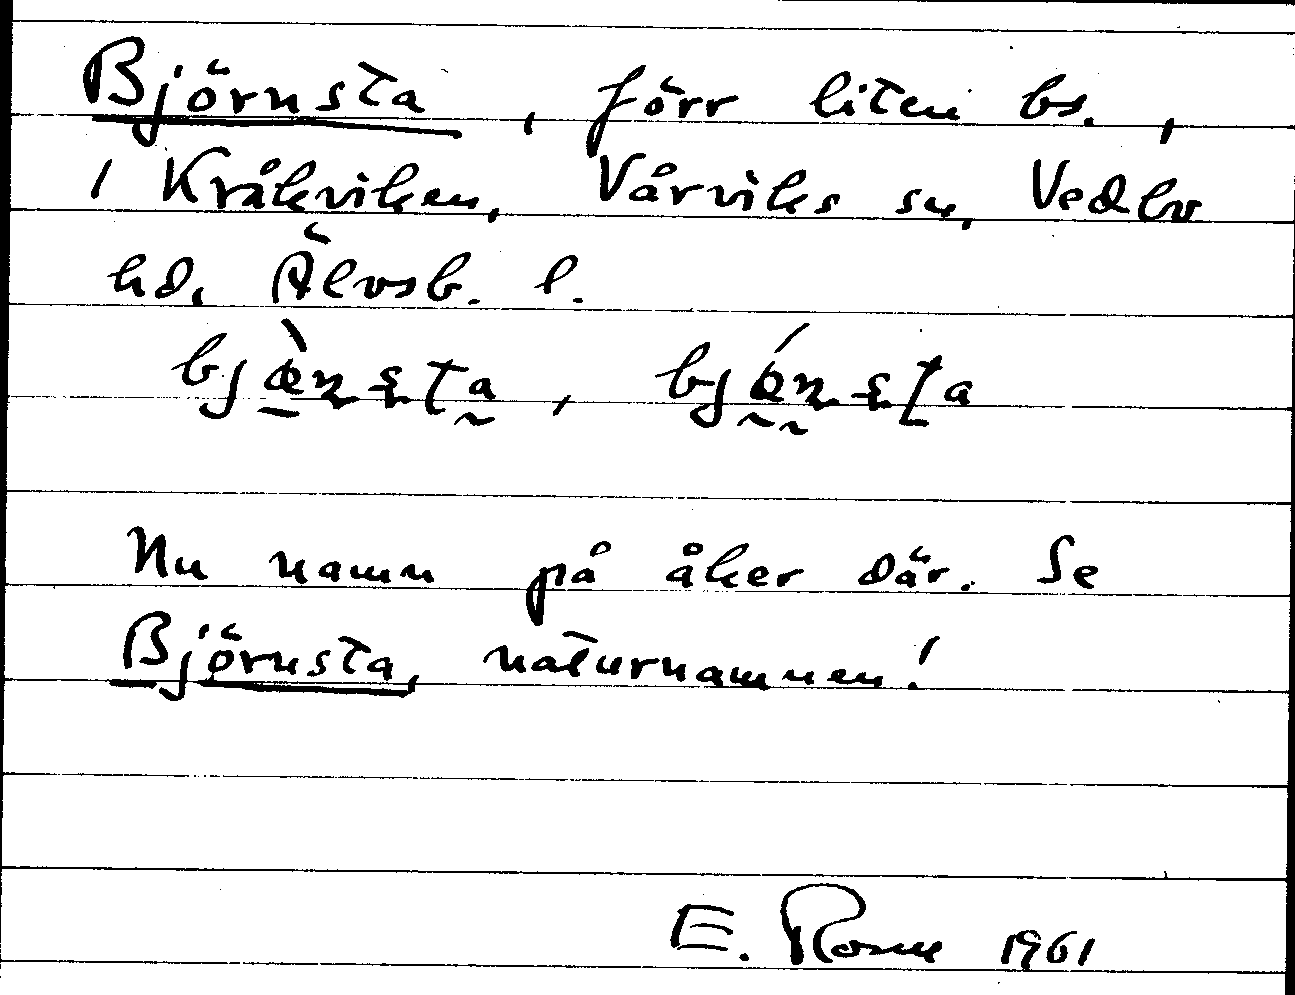 Björnsta, förr liten bs.,
i Kråkviken, Vårviks sn, Vedbo
hd, Älvsb. l.
Nu namn på åker där. Se
Björnsta, naturnamnen!
E. 1961